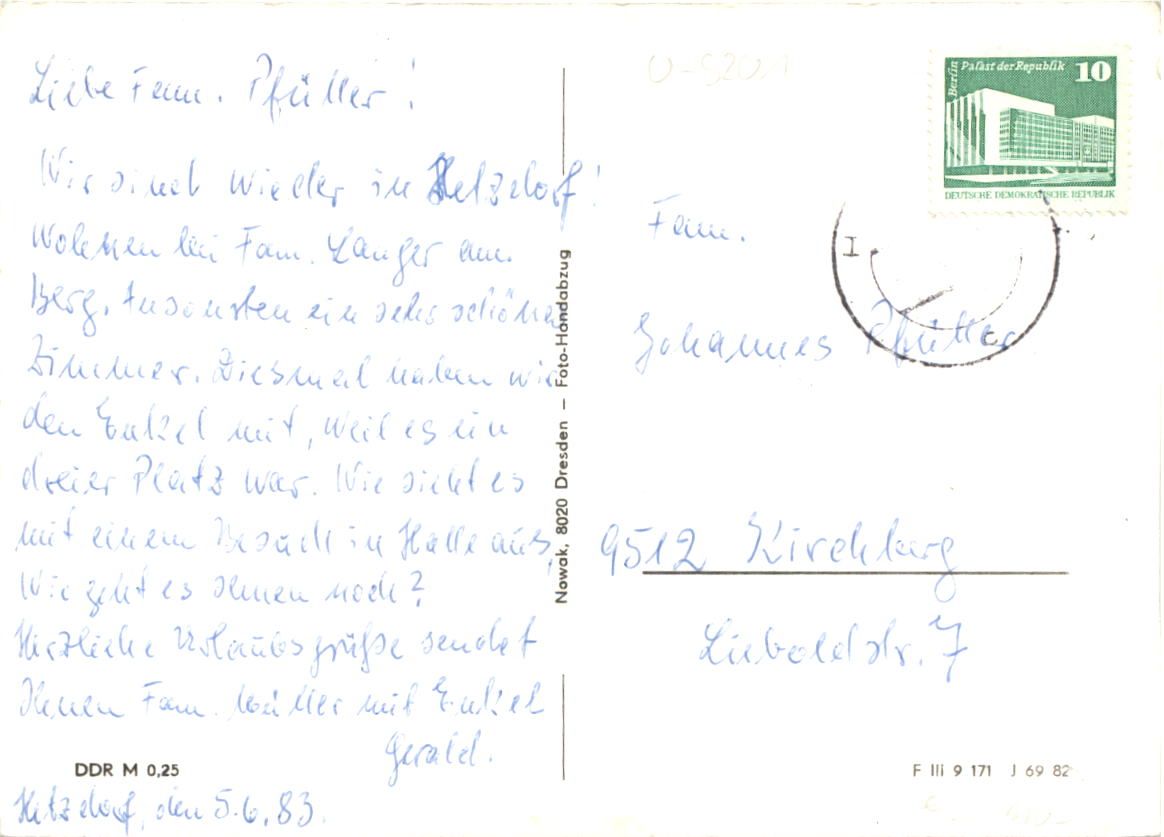 Liebe Fam. Pfüller!
Wir sind wieder in Hetzdorf!
Wohnen bei Fam. Langer am
Berg. Ansonsten ein sehr schönes
Zimmer. Diesmal haben wir
den Enkel mit, weil es ein
dreier Platz war. Wie sieht es
mit einem Besuch in Halle aus,
Wie geht es Ihnen noch?
Herzliche Urlaubsgrüße sendet
Ihnen Fam. Müller mit Enkel
Gerald.
DDR M 0,25
Hetzdorf, den 5.6.83.
Nowak, 8020 Dresden – Foto-Handabzug
U-5201
Berlin Palast der Republik 10
DEUTSCHE DEMOKRATISCHE REPUBLIK
Fam.
Johannes Pfüller
9512 Kirchberg
Lieboldstr. 7
F III 9 171 J 69 82